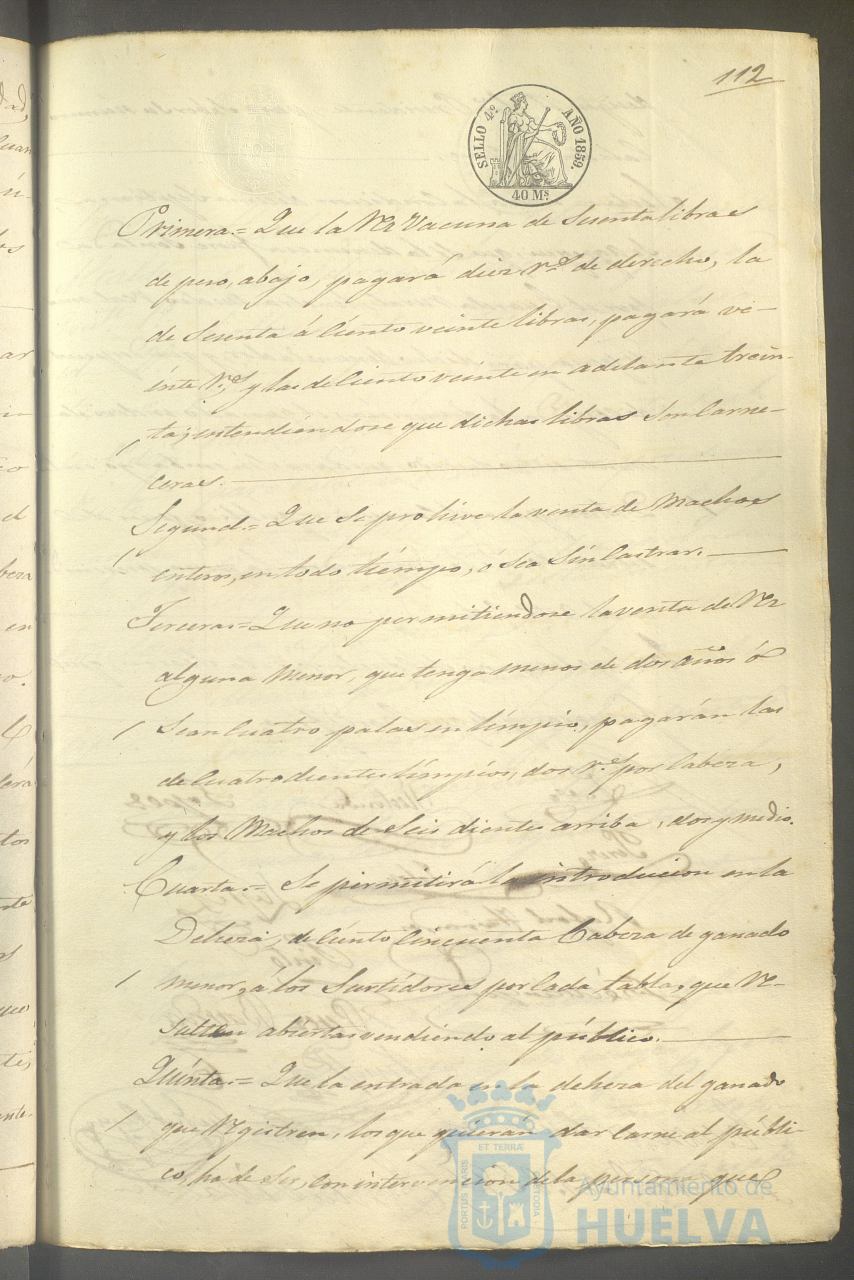 112
SELLO 4º AÑO 1859.
40 Ms
Primera.= Que la Rz Vacuna de Sesenta libras
de peso, abajo, pagará diez Rs de derecho, la
de Sesenta á Ciento veinte libras, pagará ve-
einte Rs, y las de Ciento veinte en adelante trein-
ta; entendiéndose que dichas libras son Carne-
ceras.
Segund.= Que se prohive la venta de Machos
enteros, en todo tiempo, ó sea Sin Castrar.
Tercera.= Que no permitiendose la venta de Rz
alguna Menor, que tenga menos de dos años ó
Sean Cuatro palas en límpio, pagarán las
de Cuatro dientes límpios, dos rs por Cabeza,
y los Machos de Seis dientes arriba, dos y medio.
Cuarta.= Se permitirá la introducion en la
Deheza, de Ciento Cincuenta Cabeza de ganado
menor, á los Surtidores por Cada tabla, que Re-
sulten abiertas vendiendo al público.
Quinta.= Que la entrada en la deheza del ganado
que Registren, los que quieran dar Carne al públi-
co, ha de ser, con intervencion de la persona que
PORTUS MARIS ET TERRÆ CUSTODIA
Ayuntamiento de
HUELVA